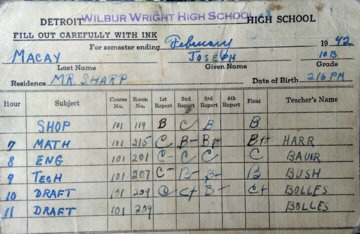 DETROIT WILBUR WRIGHT HIGH SCHOOL HIGH SCHOOL
FILL OUT CAREFULLY WITH INK
For semester ending February 1942
MACAY JOSEPH 10B
Last Name Given Name Grade
Residence MR. SHARP Date of Birth 216 PM
Hour Subject Course No. Room No. 1st Report 2nd Report 3rd Report 4th Report Final Teacher's Name
SHOP 101 119 B C B B
7 MATH 101 215 C B- B+ B+ HARR
8 ENG 101 201 C- C C C BAUER
9 TECH 101 207 C- B- B- B BUSH
10 DRAFT 101 209 C+ B- C+ BOLLES
11 DRAFT 101 209 BOLLES